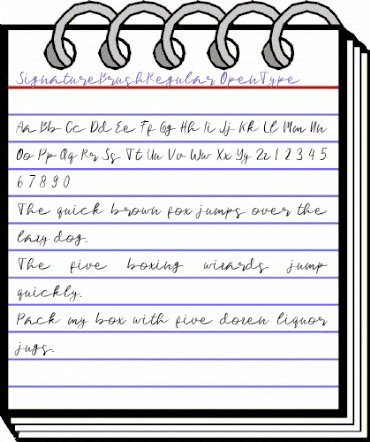 SignatureBrushRegular OpenType
Aa Bb Cc Dd Ee Ff Gg Hh Ii Jj Kk Ll Mm Nn
Oo Pp Qq Rr Ss Tt Uu Vv Ww Xx Yy Zz 1 2 3 4 5
6 7 8 9 0
The quick brown fox jumps over the
lazy dog.
The five boxing wizards jump
quickly.
Pack my box with five dozen liquor
jugs.